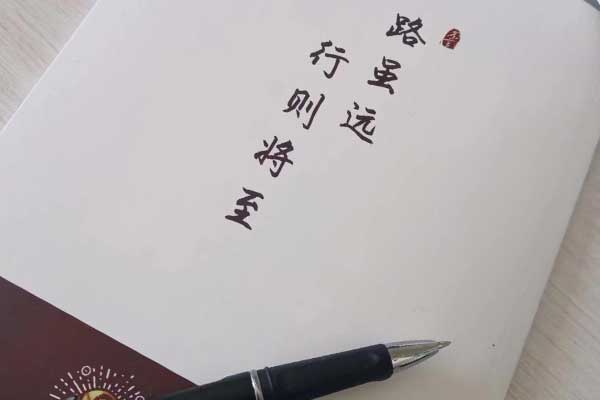 路虽远
行则将至